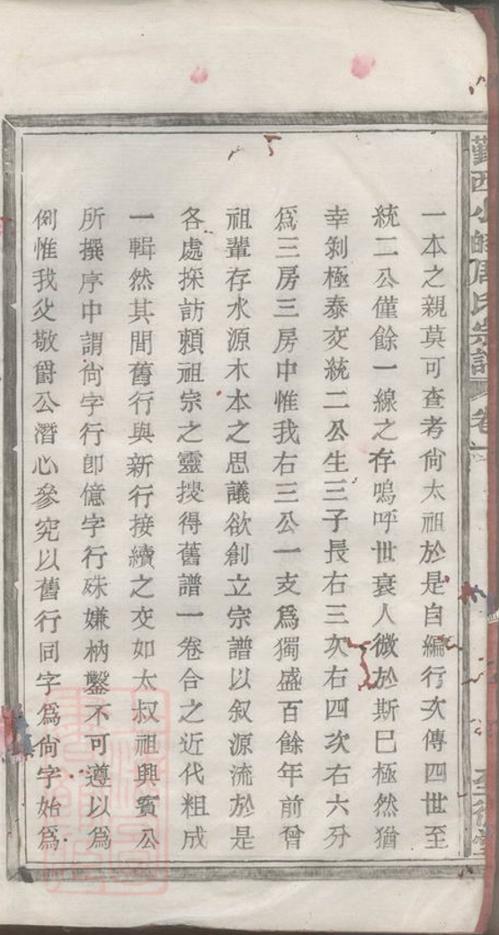 一本之親莫可查考尙太祖於是自編行次傳四世至
統二公僅餘一線之存嗚呼世衰人微於斯巳極然猶
幸剝極泰交統二公生三子長右三次右四次右六分
爲三房三房中惟我右三公一支爲獨盛百餘年前曾
祖輩存水源木本之思議欲創立宗譜以叙源流於是
各處採訪頼祖宗之靈搜得舊譜一卷合之近代粗成
一輯然其間舊行與新行接續之交如太叔祖興賓公
所撰序中謂尙字行卽億字行殊嫌枘鑿不可遵以爲
例惟我父敬爵公潛心參究以舊行同字爲尙字始爲
周氏宗譜
卷